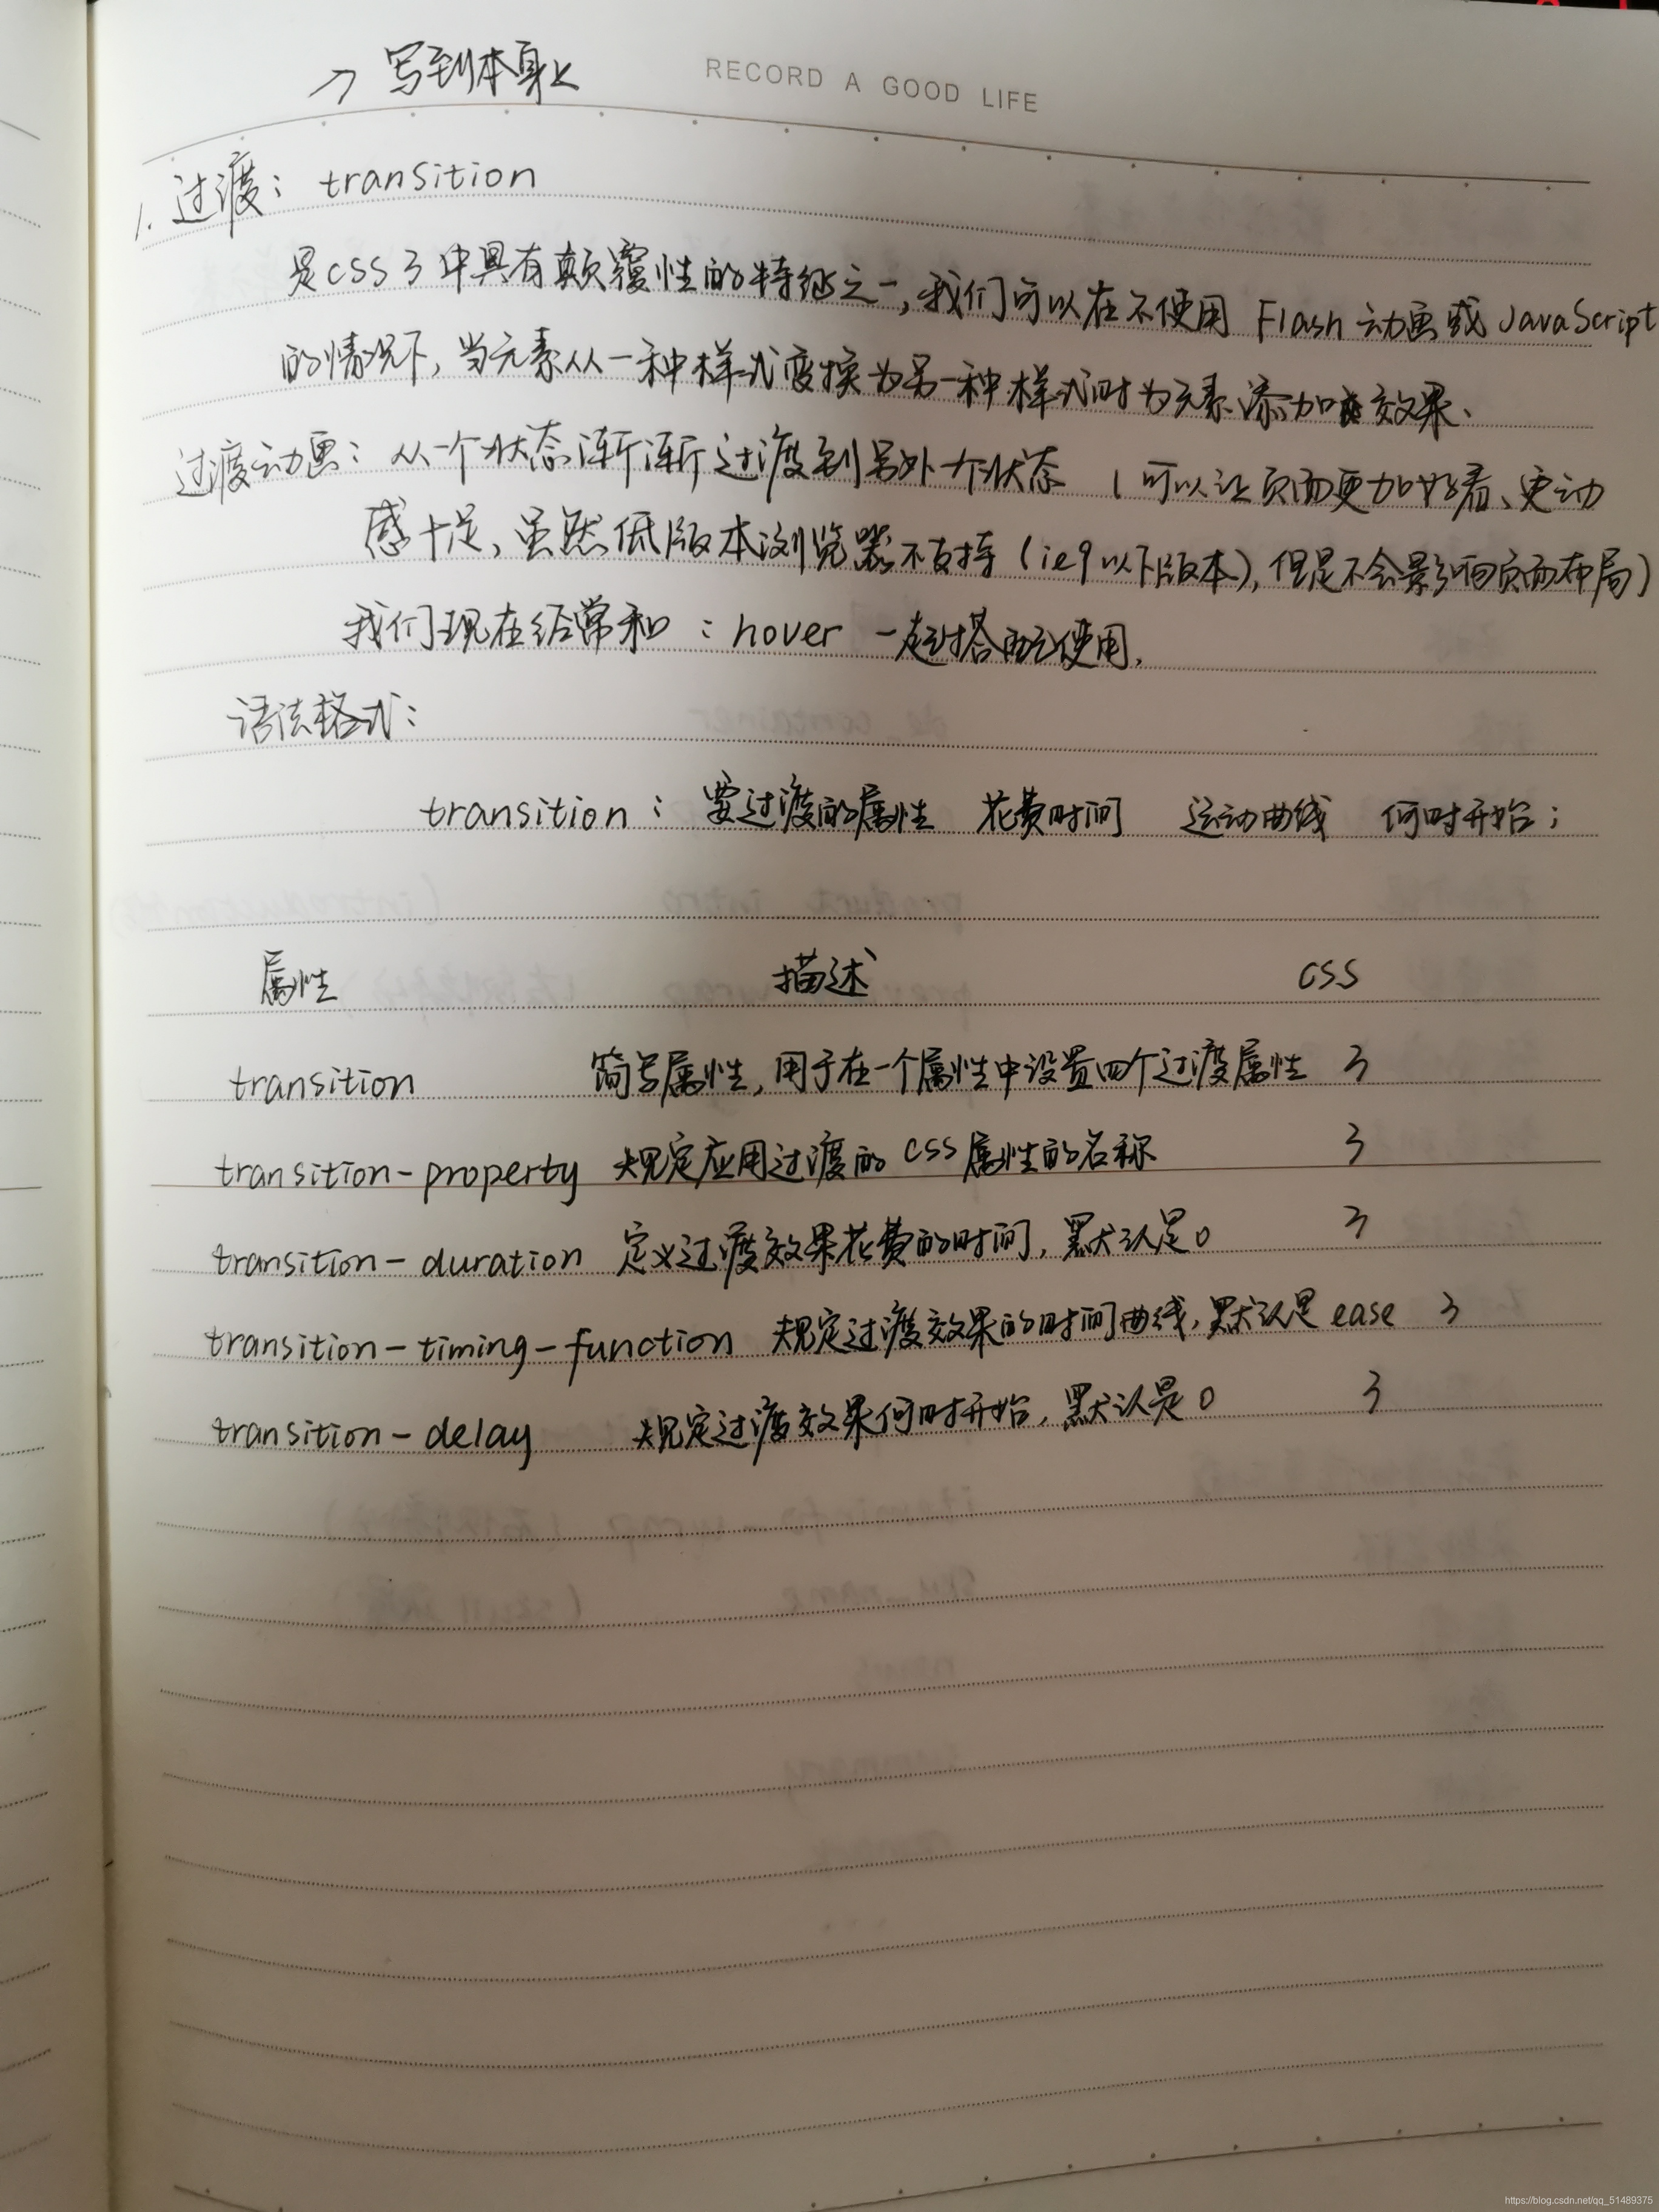 → 写到本身上
RECORD A GOOD LIFE
1. 过渡: transition
是CSS3中具有颠覆性的特征之一,我们可以在不使用 Flash 动画或 JavaScript
的情况下,当元素从一种样式变换为另一种样式时为元素添加效果、
过渡动画: 从一个状态渐渐过渡到另外一个状态 (可以让页面更加好看、更动
感十足,虽然低版本浏览器不支持(ie9以下版本),但是不会影响页面布局)
我们现在经常和 :hover 一起搭配使用.
语法格式:
transition: 要过渡的属性 花费时间 运动曲线 何时开始;
属性 描述 CSS
transition 简写属性,用于在一个属性中设置四个过渡属性 3
transition-property 规定应用过渡的 CSS属性的名称 3
transition-duration 定义过渡效果花费的时间,默认是0 3
transition-timing-function 规定过渡效果的时间曲线,默认是 ease 3
transition-delay 规定过渡效果何时开始,默认是0 3
https://blog.csdn.net/qq_51489375